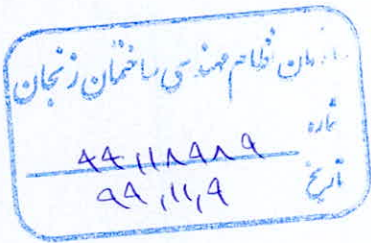 سازمان نظام مهندسی ساختمان زنجان
شماره ۹۹,۱۱۸۹۸۹
تاریخ ۹۹,۱۱,۹